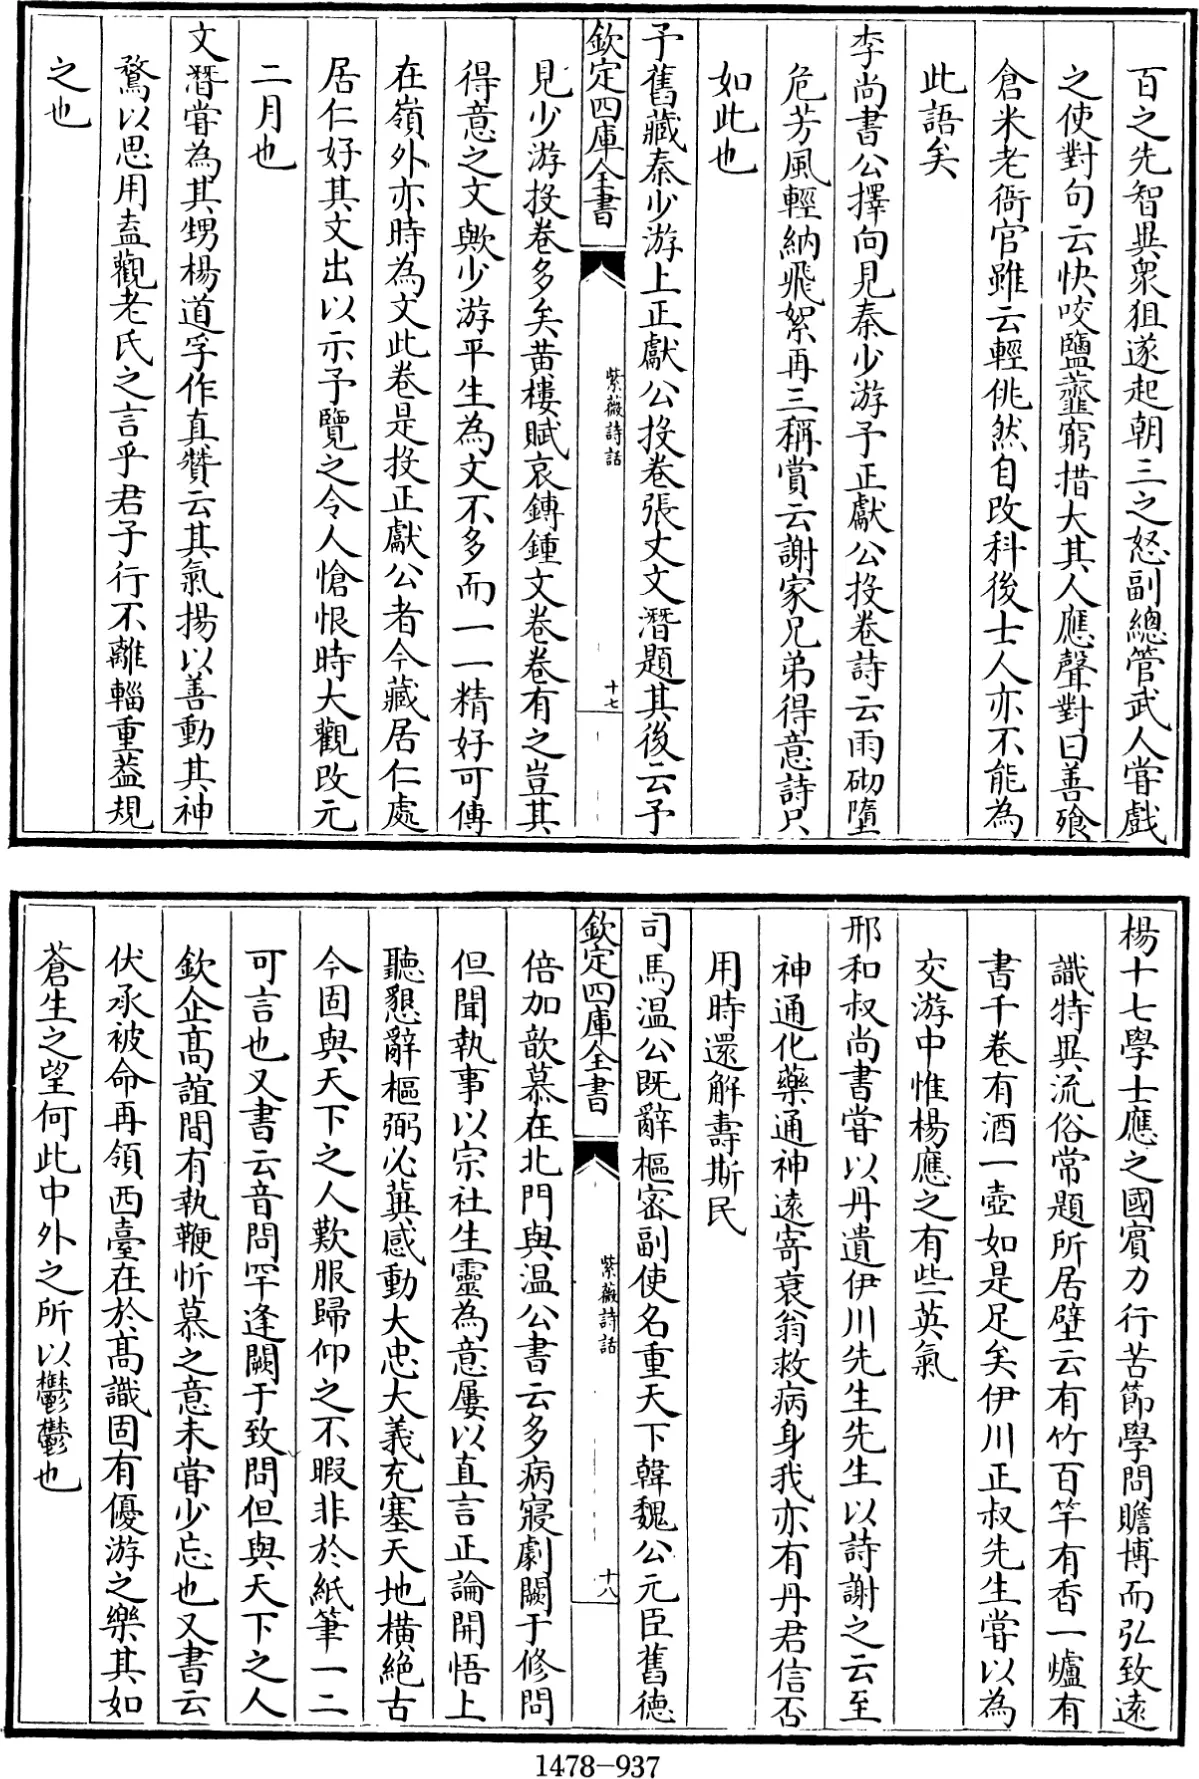 百之先智異衆狙遂起朝三之怒副總管武人嘗戲
之使對句云快咬鹽虀窮措大其人應聲對曰善飱
倉米老衙官雖云輕佻然自改科後士人亦不能為
此語矣
李尚書公擇向見秦少游予正獻公投卷詩云雨砌墮
危芳風輕納飛絮再三稱賞云謝家兄弟得意詩只
如此也
予舊藏秦少游上正獻公投卷張丈文潛題其後云予
欽定四庫全書
紫薇詩話
十七
見少游投卷多矣黄樓賦哀鏄鍾文卷卷有之豈其
得意之文歟少游平生為文不多而一一精好可傳
在嶺外亦時為文此卷是投正獻公者今藏居仁處
居仁好其文出以示予覽之令人愴恨時大觀改元
二月也
文潛嘗為其甥楊道孚作真贊云其氣揚以善動其神
騖以思用盍觀老氏之言乎君子行不離輜重葢規
之也
楊十七學士應之國賓力行苦節學問贍博而弘致遠
識特異流俗常題所居壁云有竹百竿有香一爐有
書千卷有酒一壺如是足矣伊川正叔先生嘗以為
交游中惟楊應之有些英氣
邢和叔尚書嘗以丹遺伊川先生先生以詩謝之云至
神通化藥通神遠寄衰翁救病身我亦有丹君信否
用時還解壽斯民
司馬温公既辭樞密副使名重天下韓魏公元臣舊德
欽定四庫全書
紫薇詩話
十八
倍加歆慕在北門與温公書云多病寢劇闕于修問
但聞執事以宗社生靈為意屢以直言正論開悟上
聽懇辭樞弼必兾感動大忠大義充塞天地橫絶古
今固與天下之人歎服歸仰之不暇非於紙筆一二
可言也又書云音問罕逢闕于致問但與天下之人
欽企髙誼間有執鞭忻慕之意未嘗少忘也又書云
伏承被命再領西臺在於髙識固有優游之樂其如
蒼生之望何此中外之所以鬱鬱也
1478-937